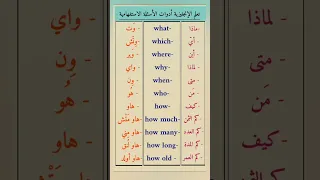 تعلم الإنجليزية أدوات الأسئلة الاستفهامية
ماذا- what- وت
أي- which- وتش
أين- where- وير
لماذا- why- واي
متى- when- ون
من- who- هو
كيف- how- هاو
كم الثمن- how much- هاو متش
كم العدد- how many- هاو مني
كم المدة- how long- هاو لنق
كم العمر- how old - هاو أولد